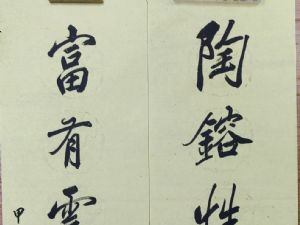 陶鎔
富有雲
甲